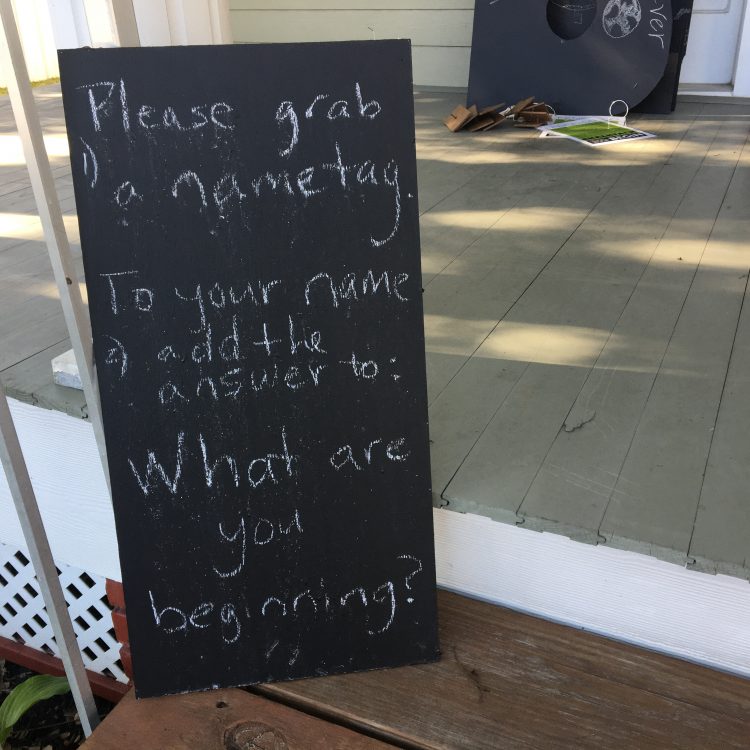 Please grab
1) a nametag.
To your name
2) add the
answer to:
What are
you
beginning?
ever